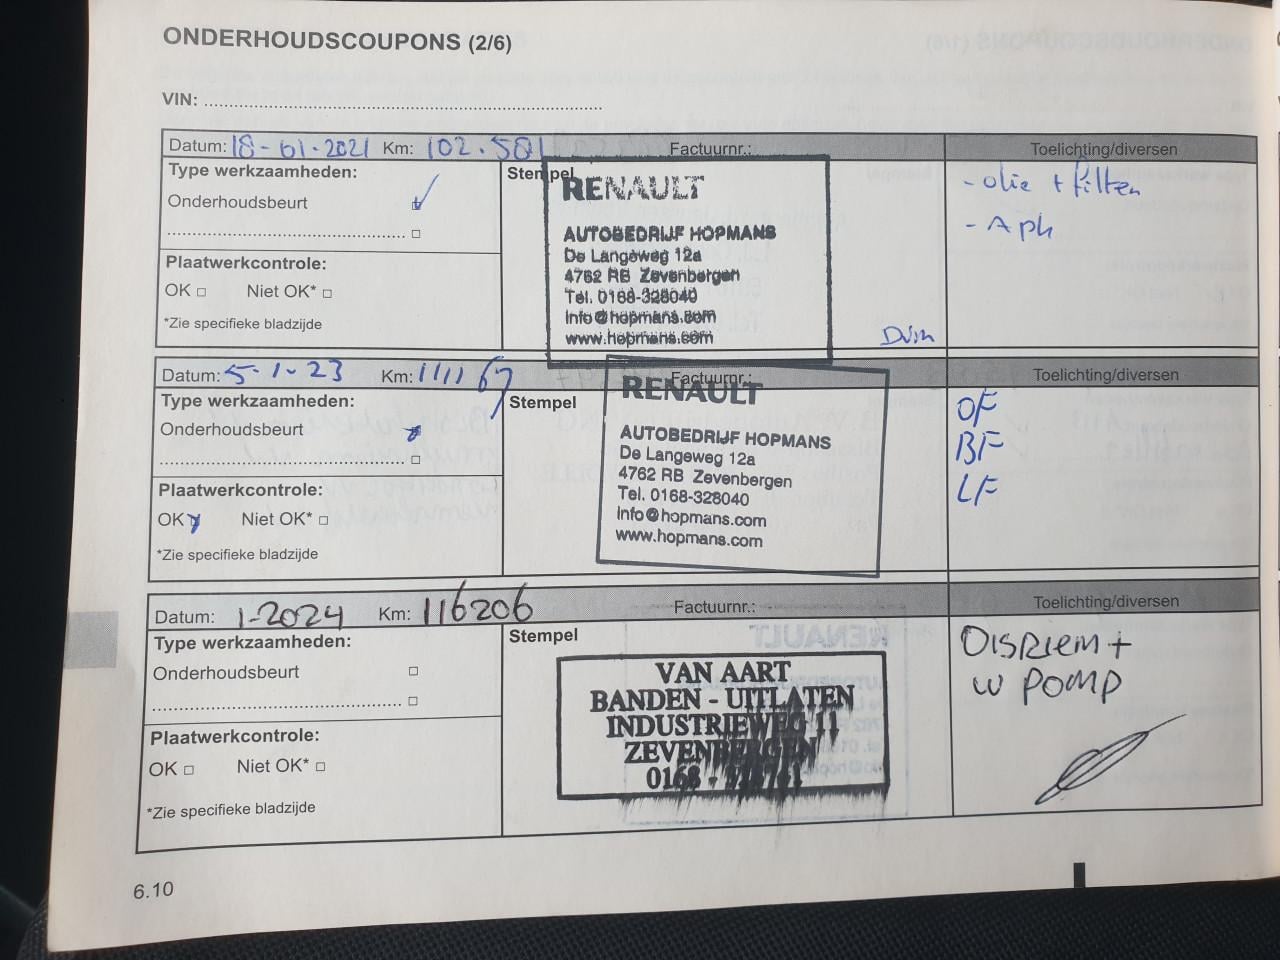 ONDERHOUDSCOUPONS (2/6)
VIN:
Datum: 18-01-2021 Km: 102.581 Factuurnr.: Toelichting/diversen
Type werkzaamheden: Stempel
Onderhoudsbeurt
Plaatwerkcontrole:
OK Niet OK*
*Zie specifieke bladzijde
RENAULT
AUTOBEDRIJF HOPMANS
De Langeweg 12a
4762 RB Zevenbergen
Tel. 0168-328040
Info@hopmans.com
www.hopmans.com
- olie + filter
- Apk
Datum: 5-1-23 Km: 111167 Factuurnr.: Toelichting/diversen
Type werkzaamheden: Stempel
Onderhoudsbeurt
Plaatwerkcontrole:
OK Niet OK*
*Zie specifieke bladzijde
RENAULT
AUTOBEDRIJF HOPMANS
De Langeweg 12a
4762 RB Zevenbergen
Tel. 0168-328040
Info@hopmans.com
www.hopmans.com
OF
BF
LF
Datum: 1-2024 Km: 116206 Factuurnr.: Toelichting/diversen
Type werkzaamheden: Stempel
Onderhoudsbeurt
Plaatwerkcontrole:
OK Niet OK*
*Zie specifieke bladzijde
VAN AART
BANDEN - UITLATEN
INDUSTRIEWEG 11
ZEVENBERGEN
0168 -
DISRIEM +
W POMP
6.10